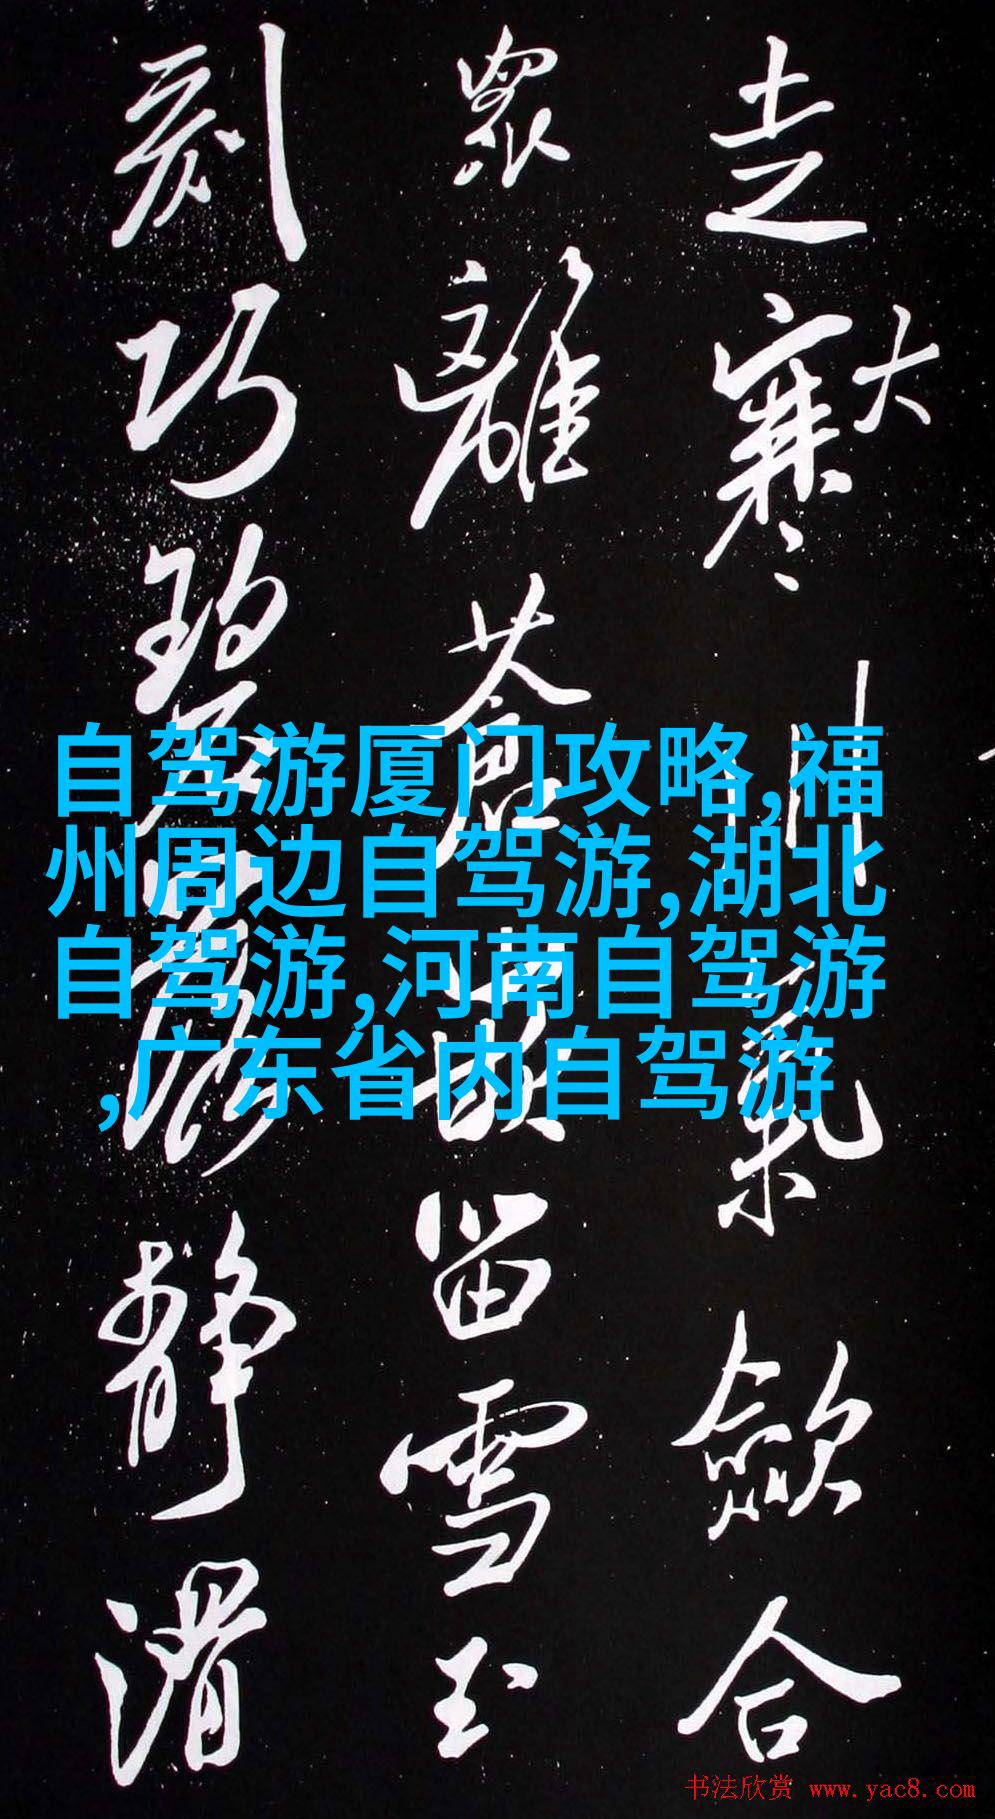 走寒大川氣歛合
衆離蒼留雪玉
刻巧碧靜滑
自驾游厦门攻略,福
州周边自驾游,湖北
自驾游,河南自驾游
,广东省内自驾游
书法欣赏 www.yac8.com